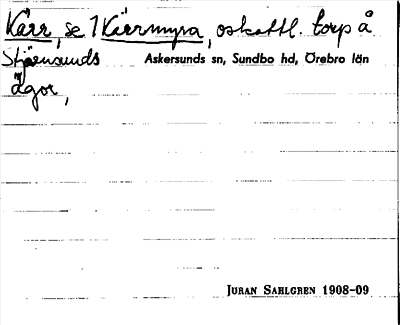 Kärr, se 1 Kärrmyra, oskattl. torp å
Stjärnsunds Askersunds sn, Sundbo hd, Örebro län
ägor,
JURAN SAHLGREN 1908-09